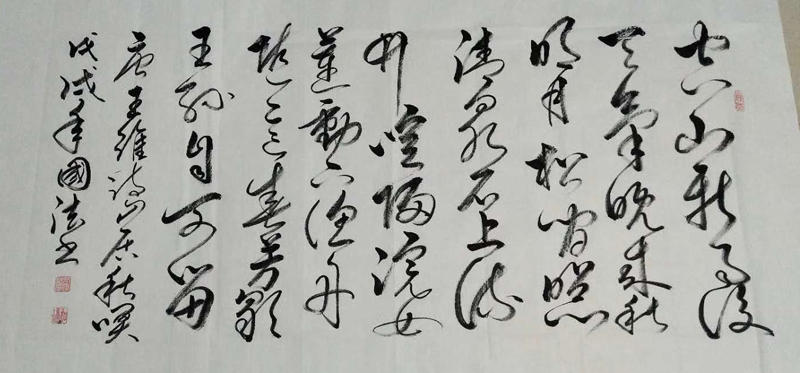 空山新雨後
天氣晚來秋
明月松間照
清泉石上流
竹喧歸浣女
蓮動下漁舟
隨意春芳歇
王孫自可留
唐王維詩山居秋暝
戊戌年國書